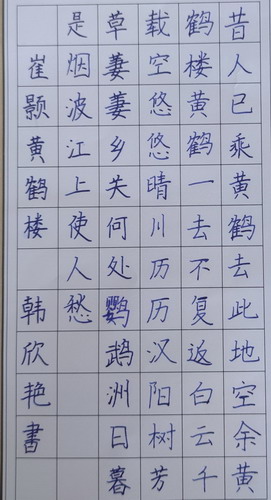 昔人已乘黄鹤去此地空余黄
鹤楼黄鹤一去不复返白云千
载空悠悠晴川历历汉阳树芳
草萋萋乡关何处鹦鹉洲日暮
是烟波江上使人愁
崔颢黄鹤楼 韩欣艳書